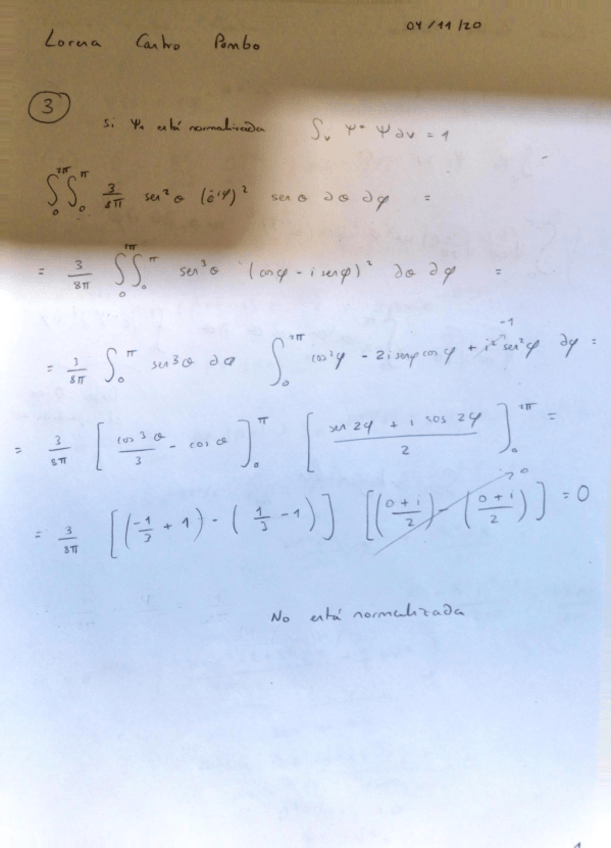 04/11/20
Lorena Castro Pombo
3
Si Ψ₁ está normalizada ∫ᵥ Ψ* Ψ ∂v = 1
∫₀²π ∫₀π 3/8π sen²θ (e⁻iφ)² senθ ∂θ ∂φ =
= 3/8π ∫₀²π ∫₀π sen³θ (cosφ - i senφ)² ∂θ ∂φ =
= 3/8π ∫₀π sen3θ ∂θ ∫₀²π cos²φ - 2i senφ cosφ + i² sen²φ ∂φ =
-1
= 3/8π [cos³θ/3 - cosθ]₀π [sen 2φ + i cos 2φ / 2]₀²π =
= 3/8π [(-1/3 + 1) - (1/3 - 1)] [(0+i/2) - (0+i/2)] = 0
0
No está normalizada